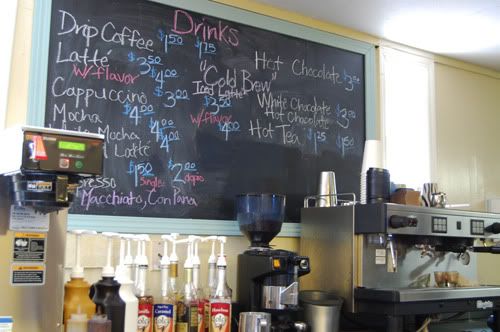 Drinks
Drip Coffee $1.50 $1.75
Latté $3.50
w/flavor $4.00
Cappuccino $3.00
Mocha $4.00
Mocha $4.00
Latté $4.00
$1.50 single $2.00
Macchiato, Con Pana
"Cold Brew"
Iced Coffee
$3.50
w/flavor $4.00
Hot Chocolate
White Chocolate $3.00
Hot Chocolate
Hot Tea $1.25
Caramel